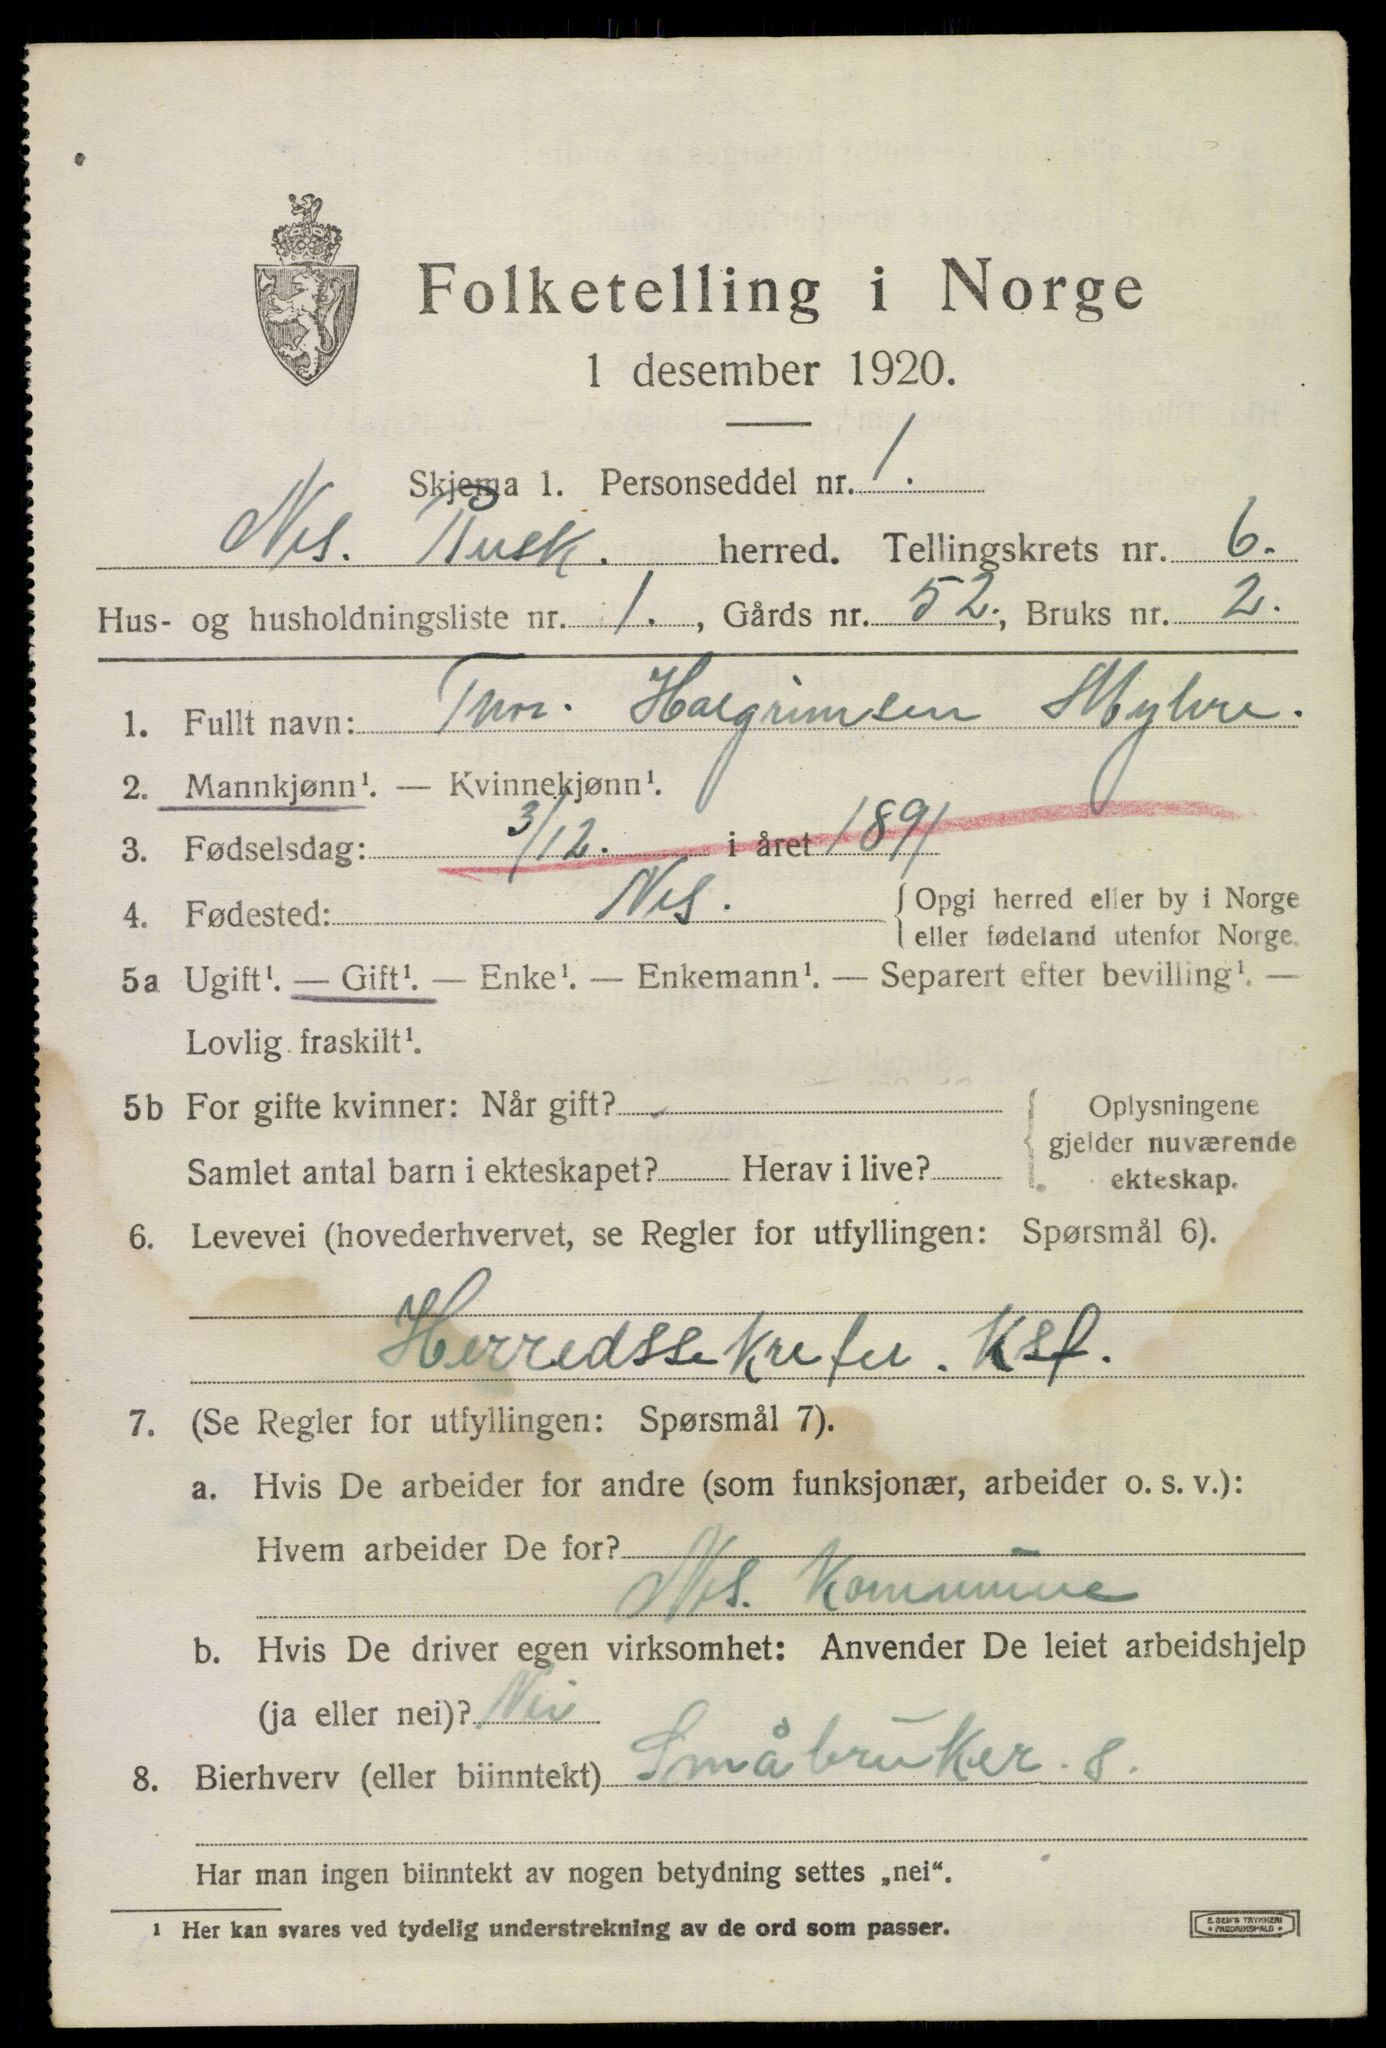 Folketelling i Norge
1 desember 1920.
Skjema 1. Personseddel nr. 1.
Nes. Busk. herred. Tellingskrets nr. 6.
Hus- og husholdningsliste nr. 1., Gårds nr. 52., Bruks nr. 2.
1. Fullt navn: Thor. Halgrimsen Myhre.
2. Mannkjønn¹. — Kvinnekjønn¹.
3. Fødselsdag: 3/12. i året 1891
4. Fødested: Nes. { Opgi herred eller by i Norge
eller fødeland utenfor Norge.
5a Ugift¹. — Gift¹. — Enke¹. — Enkemann¹. — Separert efter bevilling¹. —
Lovlig fraskilt¹.
5b For gifte kvinner: Når gift? { Oplysningene
gjelder nuværende
Samlet antal barn i ekteskapet? Herav i live? ekteskap.
6. Levevei (hovederhvervet, se Regler for utfyllingen: Spørsmål 6).
Herredssekretær. Ksf.
7. (Se Regler for utfyllingen: Spørsmål 7).
a. Hvis De arbeider for andre (som funksjonær, arbeider o. s. v.):
Hvem arbeider De for?
Nes. Kommune
b. Hvis De driver egen virksomhet: Anvender De leiet arbeidshjelp
(ja eller nei)? Nei
8. Bierhverv (eller biinntekt) Småbruker. s.
Har man ingen biinntekt av nogen betydning settes „nei“.
¹ Her kan svares ved tydelig understrekning av de ord som passer.
E. SEM'S TRYKKERI
FREDRIKSHALD